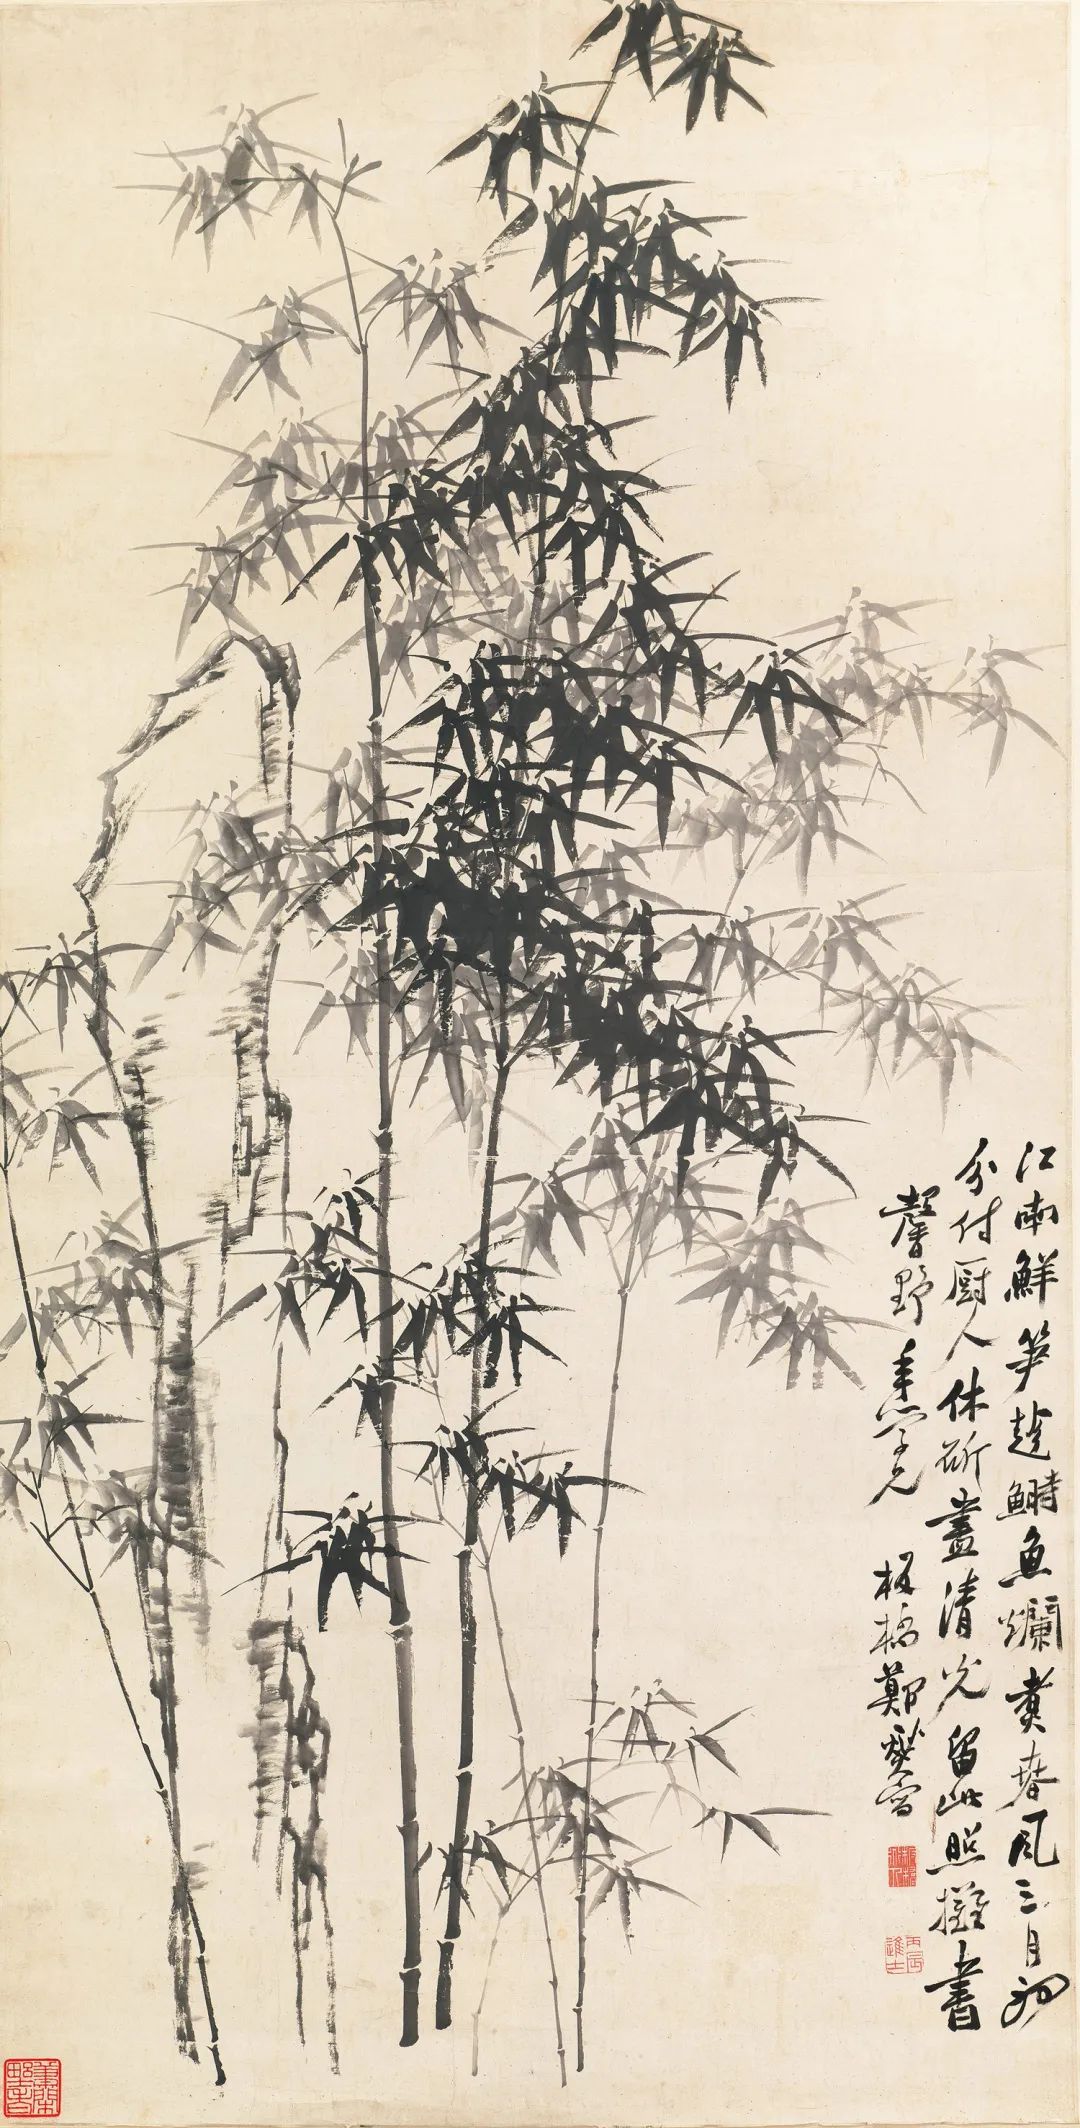 江南鮮笋趁鰣魚爛煑春風三月初
分付厨人休斫盡清光留此照攤書
馨野年學兄 板橋鄭燮寫
丙辰進士